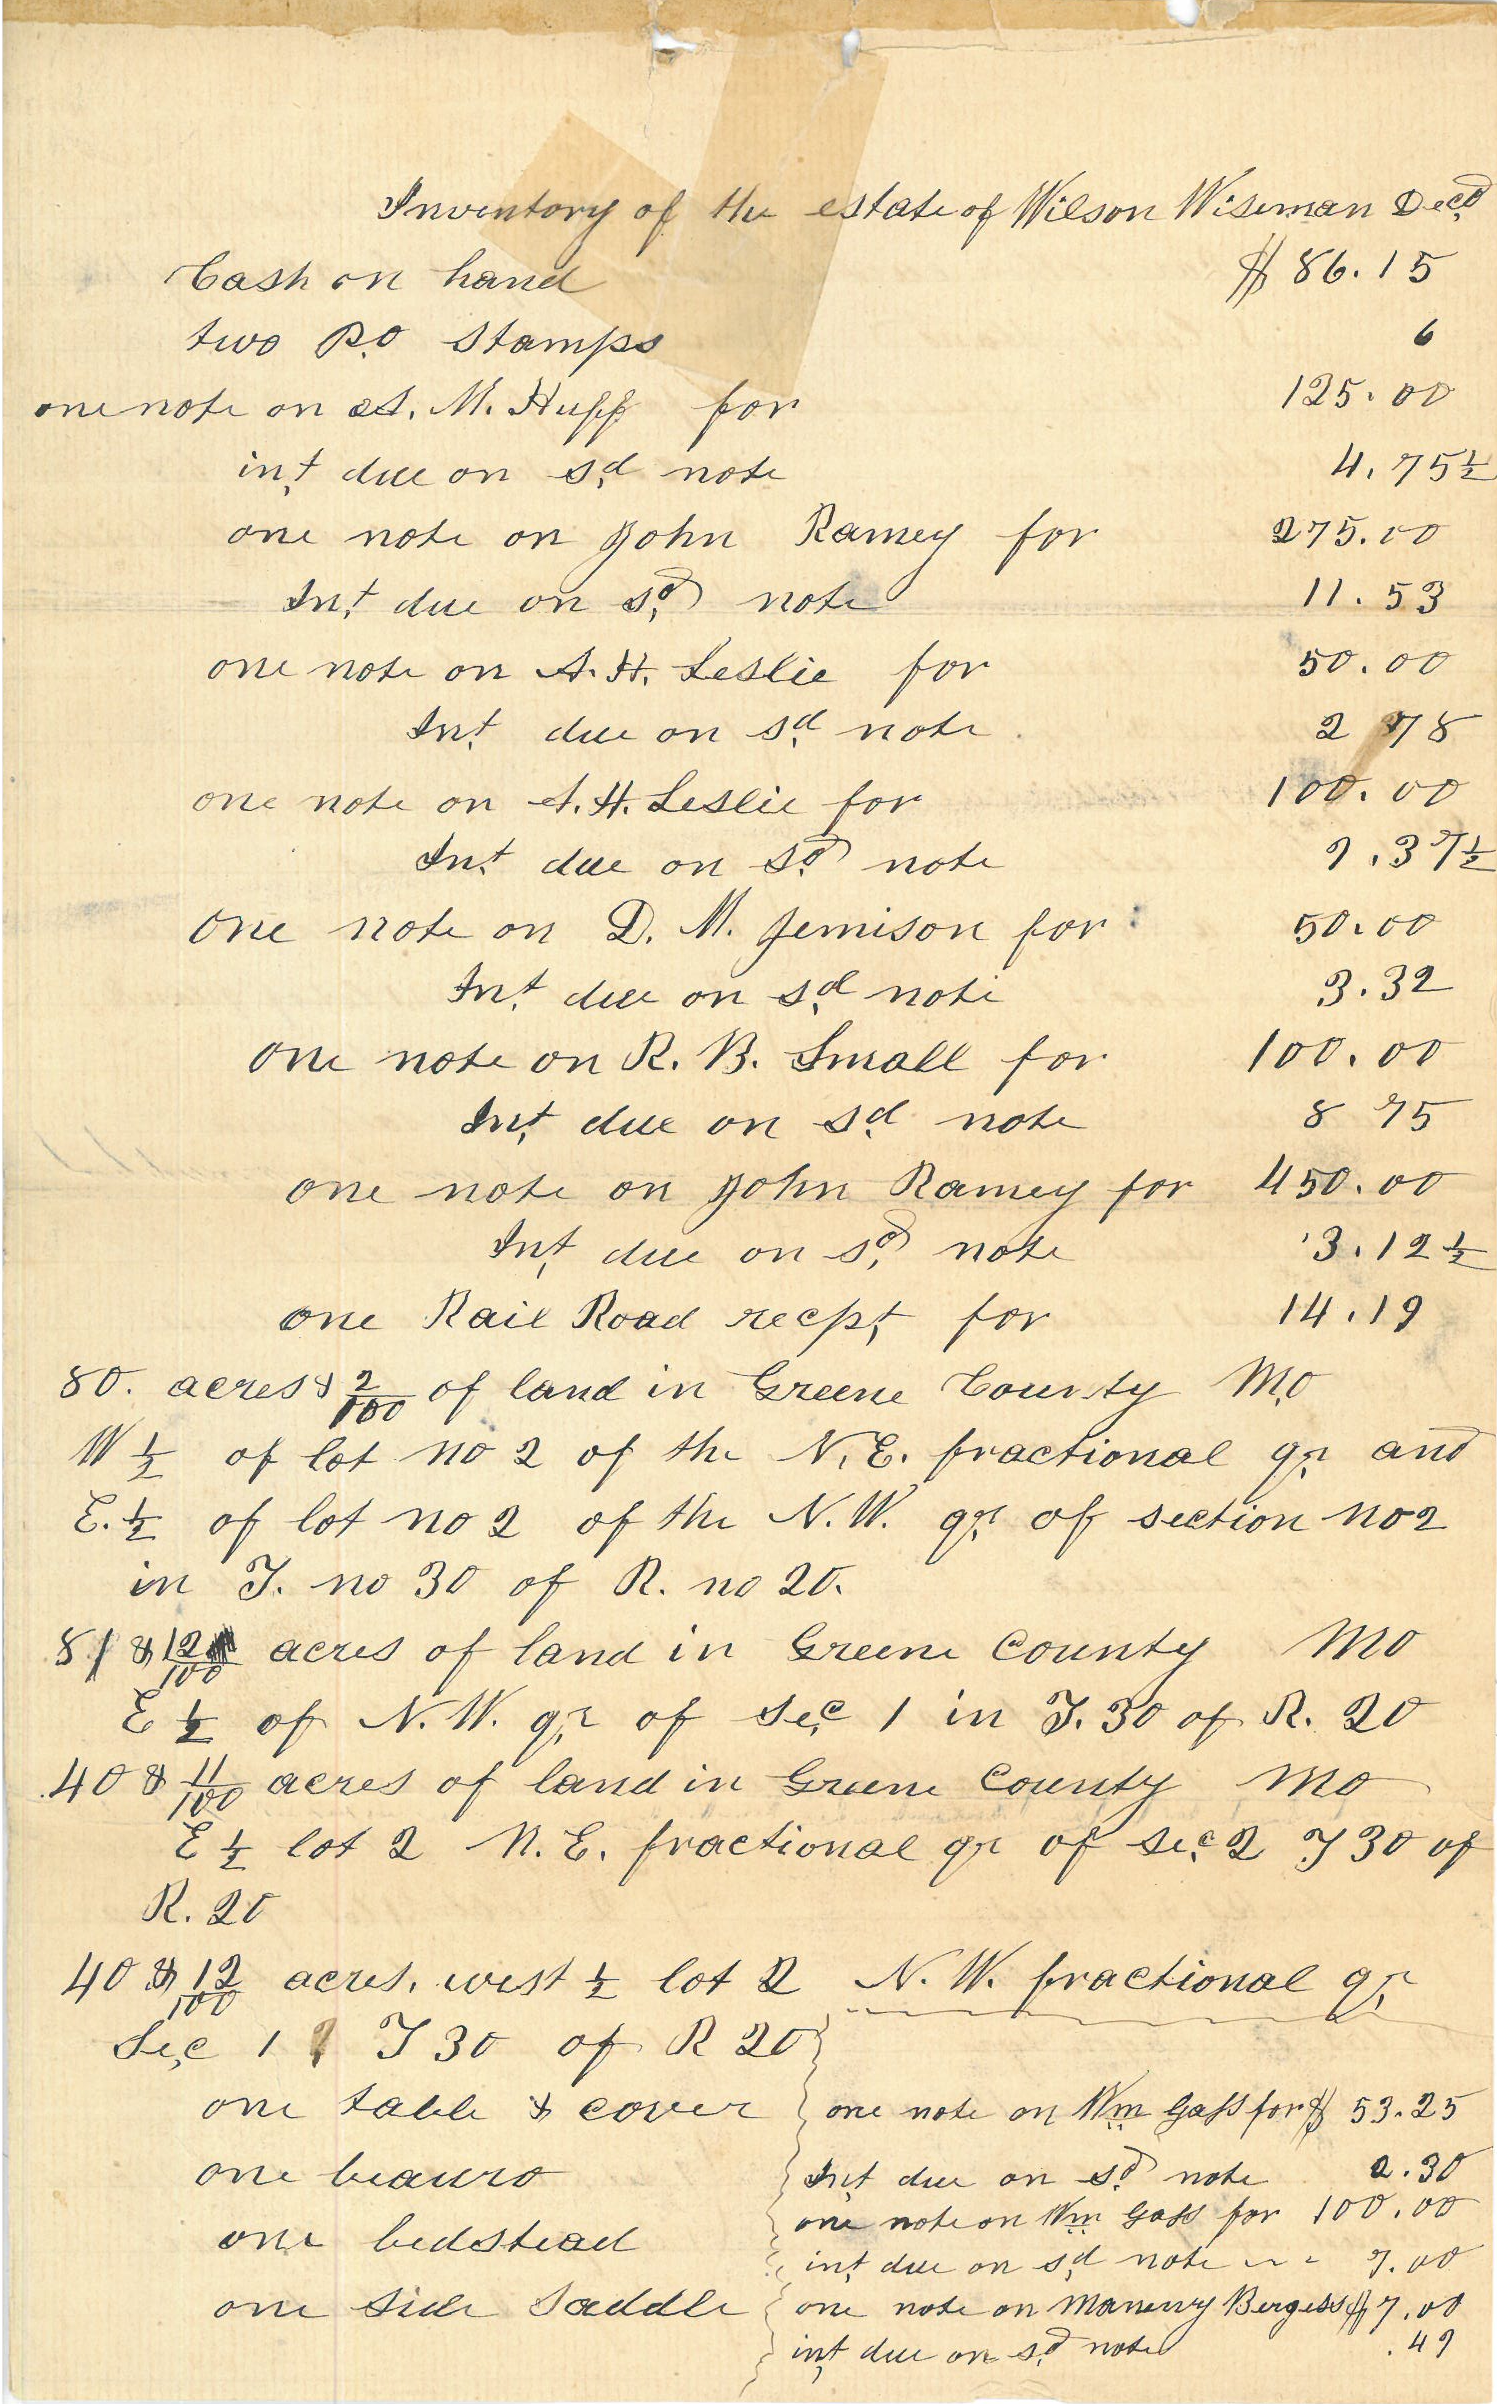 Inventory of the estate of Wilson Wiseman Decd
Cash on hand $ 86.15
two P.O Stamps 6
one note on A. M. Huff for 125.00
int due on sd note 4.75½
one note on John Ramey for 275.00
Int due on sd note 11.53
one note on A. H. Leslie for 50.00
Int due on sd note 2 78
one note on A. H. Leslie for 100.00
Int due on sd note 7.37½
One note on D. M. Jemison for 50.00
Int due on sd note 3.32
One note on R. B. Small for 100.00
Int due on sd note 8 75
one note on John Ramey for 450.00
Int due on sd note 3.12½
one Rail Road recpt for 14.19
80. acres & 2/100 of land in Greene County Mo
W ½ of lot no 2 of the N. E. fractional qr and
E. ½ of lot no 2 of the N. W. qr of section no 2
in T. no 30 of R. no 20.
81 & 12/100 acres of land in Greene County Mo
E ½ of N. W. qr of Sec 1 in T. 30 of R. 20
40 & 11/100 acres of land in Greene County Mo
E ½ lot 2 N. E. fractional qr of Sec 2 T 30 of
R. 20
40 & 12/100 acres. west ½ lot 2 N. W. fractional qr
Sec 1 T 30 of R 20
one table & cover
one beauro
one bedstead
one side Saddle
one note on Wm Gass for $ 53.25
Int due on sd note 2.30
one note on Wm Gass for 100.00
int due on sd note 7.00
one note on Bergess $ 7.00
int due on sd note .49